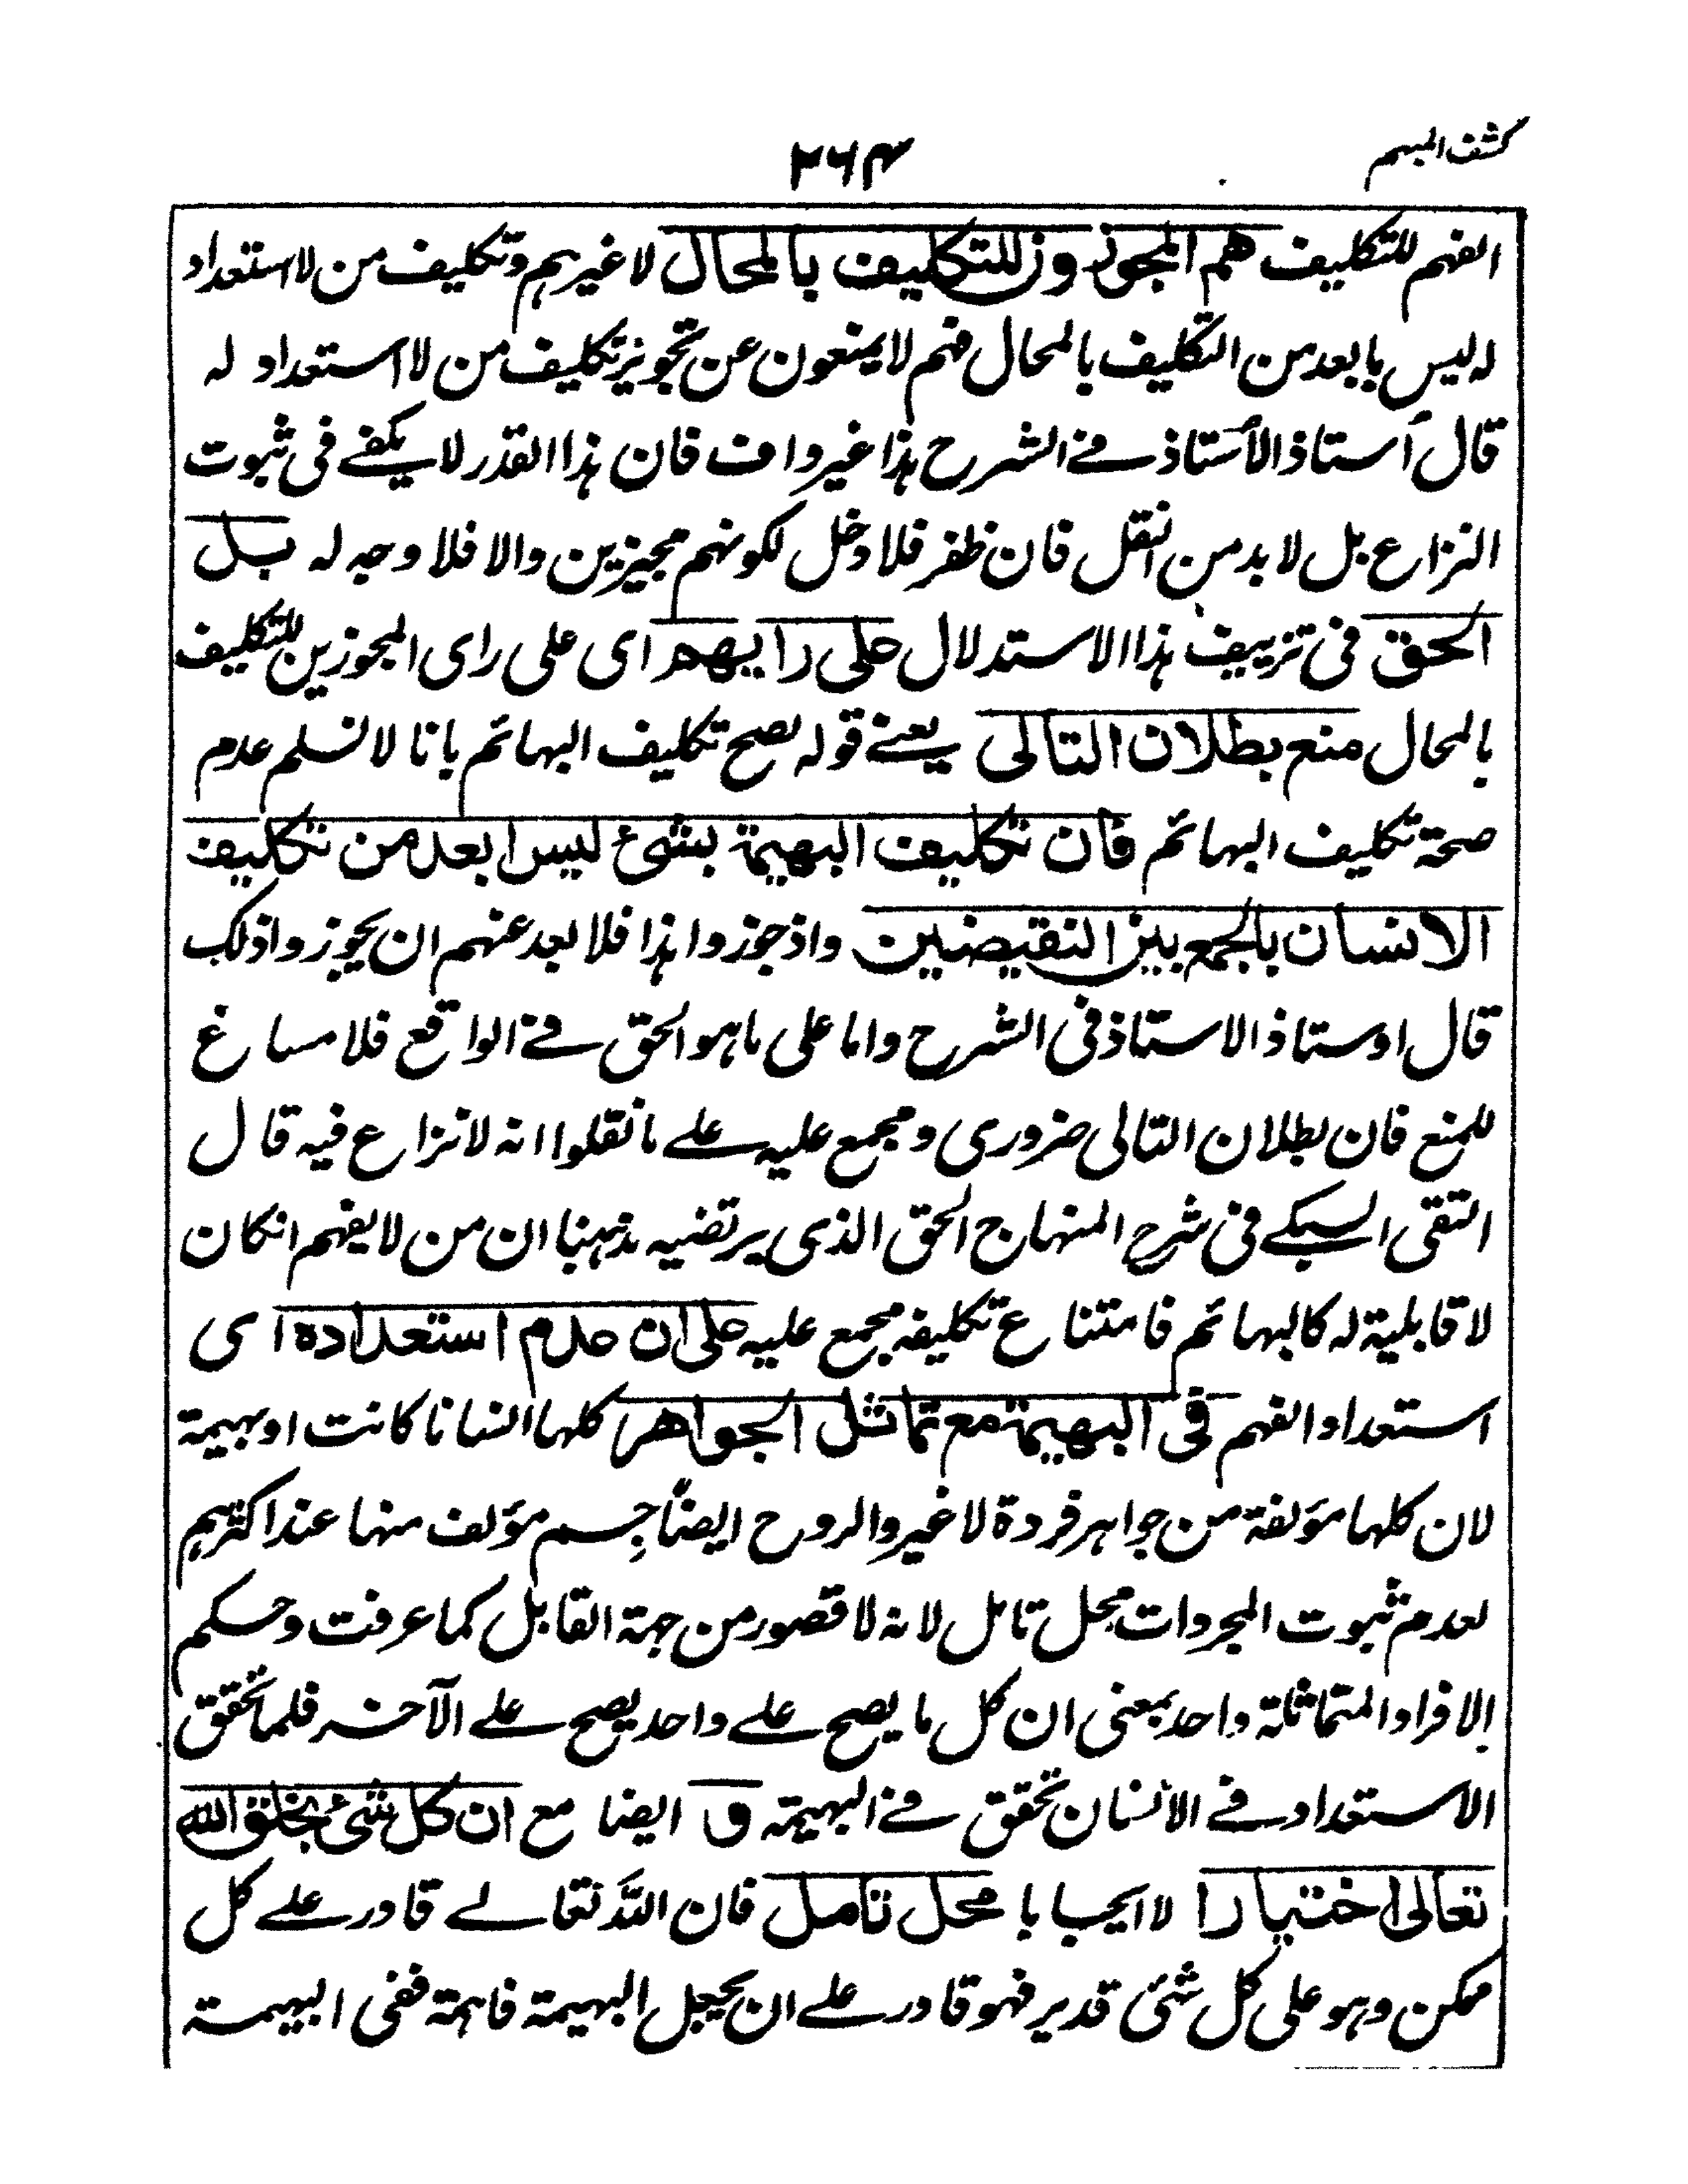 كشف المبهم
٢٦٤
الفهم للتكليف هم المجوزون للتكليف بالمحال لا غيرهم وتكليف من لا استعداد
له ليس بابعد من التكليف بالمحال فهم لا يمنعون عن تجويز تكليف من لا استعداد له
قال أستاذ الأستاذ في الشرح هذا غير واف فان هذا القدر لا يكفي في ثبوت
النزاع بل لا بد من النقل فان ظفر فلا دخل لكونهم مجيزين والا فلا وجه له بل
الحق في تزييف هذا الاستدلال على رايهم اى على راى المجوزين للتكليف
بالمحال منع بطلان التالى يعنے قوله يصح تكليف البهائم بانا لا نسلم عدم
صحة تكليف البهائم فان تكليف البهيمة بشئ ليس ابعد من تكليف
الانسان بالجمع بين النقيضين واذ جوزوا هذا فلا بعد عنهم ان يجوزوا ذلك
قال اوستاذ الاستاذ في الشرح واما على ما هو الحق في الواقع فلا مساغ
للمنع فان بطلان التالى ضرورى ومجمع عليه علے ما نقلوا انه لا نزاع فيه قال
التقى السبكے في شرح المنهاج الحق الذى يرتضيه مذهبنا ان من لا يفهم انكان
لا قابلية له كالبهائم فامتناع تكليفه مجمع عليه على ان عدم استعداده اى
استعداد الفهم فى البهيمة مع تماثل الجواهر كلها انسانا كانت او بهيمة
لان كلها مؤلفة من جواهر فردة لا غير والروح ايضاً جِسم مؤلف منها عند اكثرهم
لعدم ثبوت المجردات محل تامل لانه لا قصور من جهة القابل كما عرفت وحكم
الافراد المتماثلة واحد بمعنى ان كل ما يصح علے واحد يصح علے الآخر فلما تحقق
الاستعداد في الانسان تحقق في البهيمة و ايضا مع ان كل شئ بخلق الله
تعالى اختيارا لا ايجابا محل تامل فان الله تعالے قادر علے كل
ممكن وهو على كل شئ قدير فهو قادر علے ان يجعل البهيمة فاهمة ففى البهيمة